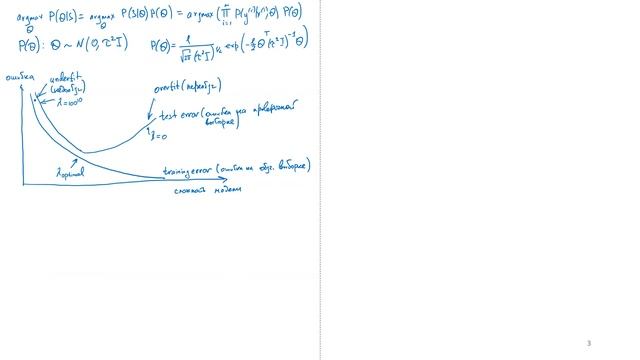 argmax_θ P(θ|S) = argmax_θ P(S|θ)P(θ) = argmax(∏_{i=1}^{n} P(y^{(i)}|x^{(i)},θ)) P(θ)
P(θ): θ ~ N(0, τ²I) P(θ) = 1/(√2π |τ²I|^{1/2}) exp(-½ θᵀ(τ²I)⁻¹θ)
ошибка
underfit
(недообуз)
λ=10¹⁰
overfit (переобуз)
test error (ошибка на проверочной
выборке)
λ=0
λ optimal
training error (ошибка на обуч. выборке)
сложность модели
3